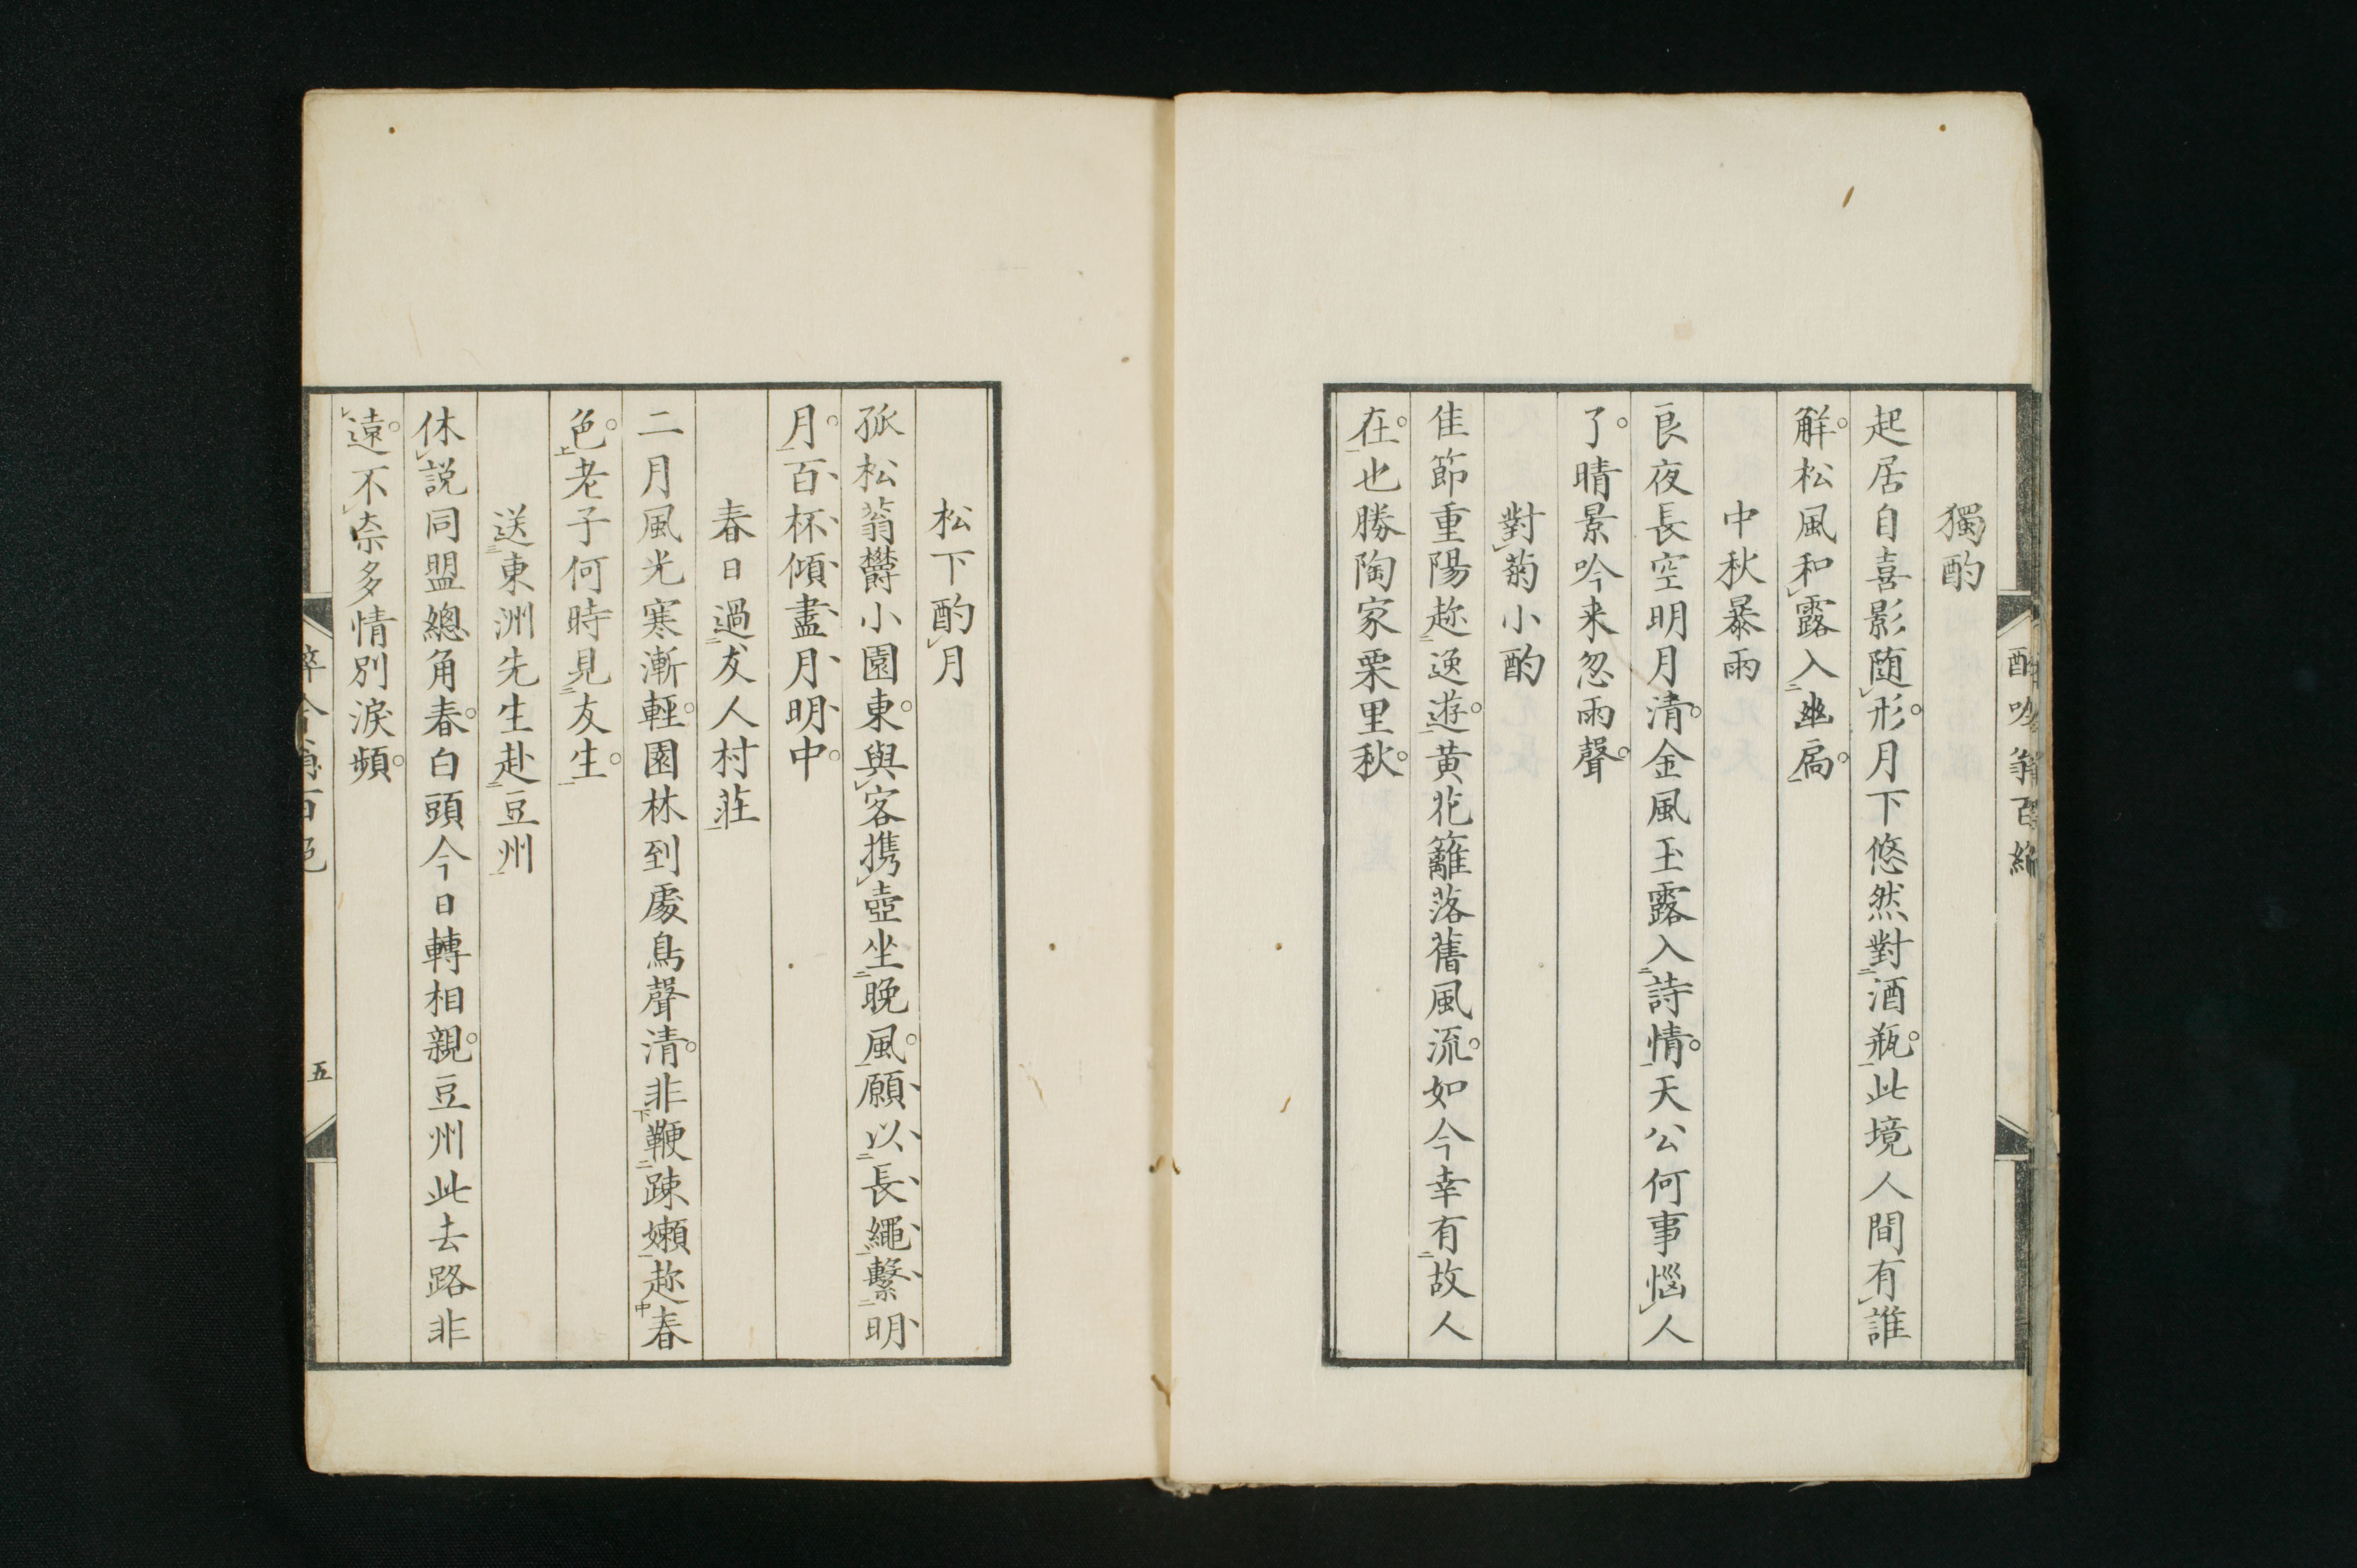 獨酌
起居自喜影随形月下悠然對酒瓶此境人間有誰
解松風和露入幽扃
中秋暴雨
良夜長空明月清金風玉露入詩情天公何事惱人
了晴景吟来忽雨聲
對菊小酌
佳節重陽趂逸遊黄花籬落舊風流如今幸有故人
在也勝陶家栗里秋
松下酌月
孤松蓊欝小園東與客携壺坐晩風願以長繩繫明
月百杯傾盡月明中
春日過友人村莊
二月風光寒漸輕園林到處鳥聲清非鞭踈嬾趂春
色老子何時見友生
送東洲先生赴豆州
休説同盟總角春白頭今日轉相親豆州此去路非
遠不奈多情別涙頻
五